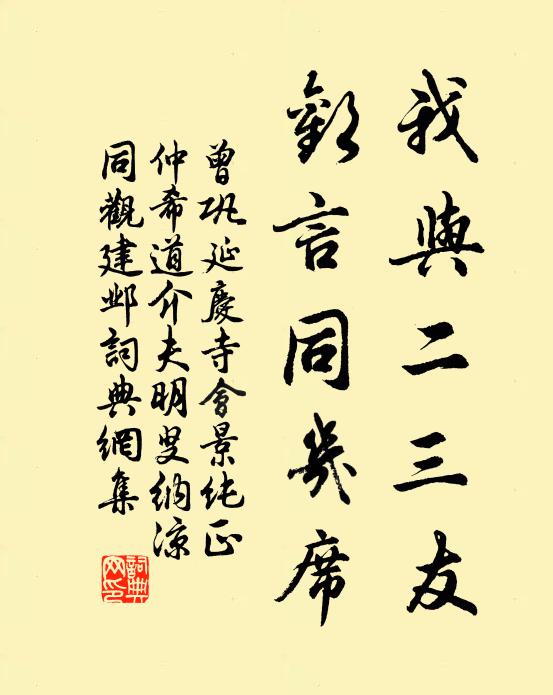 我與二三友
歡言同幾席
曾巩延慶寺會景纯正
仲希道介夫明叟纳涼
同觀建邺詞典網集
詞典網印